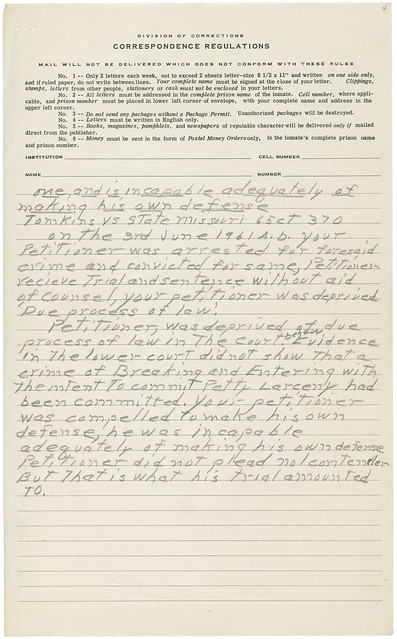 4
DIVISION OF CORRECTIONS
CORRESPONDENCE REGULATIONS
MAIL WILL NOT BE DELIVERED WHICH DOES NOT CONFORM WITH THESE RULES
No. 1 -- Only 2 letters each week, not to exceed 2 sheets letter-size 8 1/2 x 11" and written on one side only,
and if ruled paper, do not write between lines. Your complete name must be signed at the close of your letter. Clippings,
stamps, letters from other people, stationery or cash must not be enclosed in your letters.
No. 2 -- All letters must be addressed in the complete prison name of the inmate. Cell number, where appli-
cable, and prison number must be placed in lower left corner of envelope, with your complete name and address in the
upper left corner.
No. 3 -- Do not send any packages without a Package Permit. Unauthorized packages will be destroyed.
No. 4 -- Letters must be written in English only.
No. 5 -- Books, magazines, pamphlets, and newspapers of reputable character will be delivered only if mailed
direct from the publisher.
No. 6 -- Money must be sent in the form of Postal Money Orders only, in the inmate's complete prison name
and prison number.
INSTITUTION CELL NUMBER
NAME NUMBER
one, and is incapable adequately of
making his own defense
Tomkins vs State Missouri 65ct 370
on the 3rd June 1961 A.D. your
Petitioner was arrested for foresaid
crime and convicted for same, Petitioner
recieve Trial and sentence without aid
of counsel, your petitioner was deprived
Due process of law.
Petitioner, was deprived of due
process of law in The court below Evidence
in The lower court did not show that a
crime of Breaking and Entering with
the intent To commit Petty Larceny had
been committed. Your petitioner
was compelled to make his own
defense, he was incapable
adequately of making his own defense
Petitioner did not plead nol contender
But That is what his trial amounted
To.